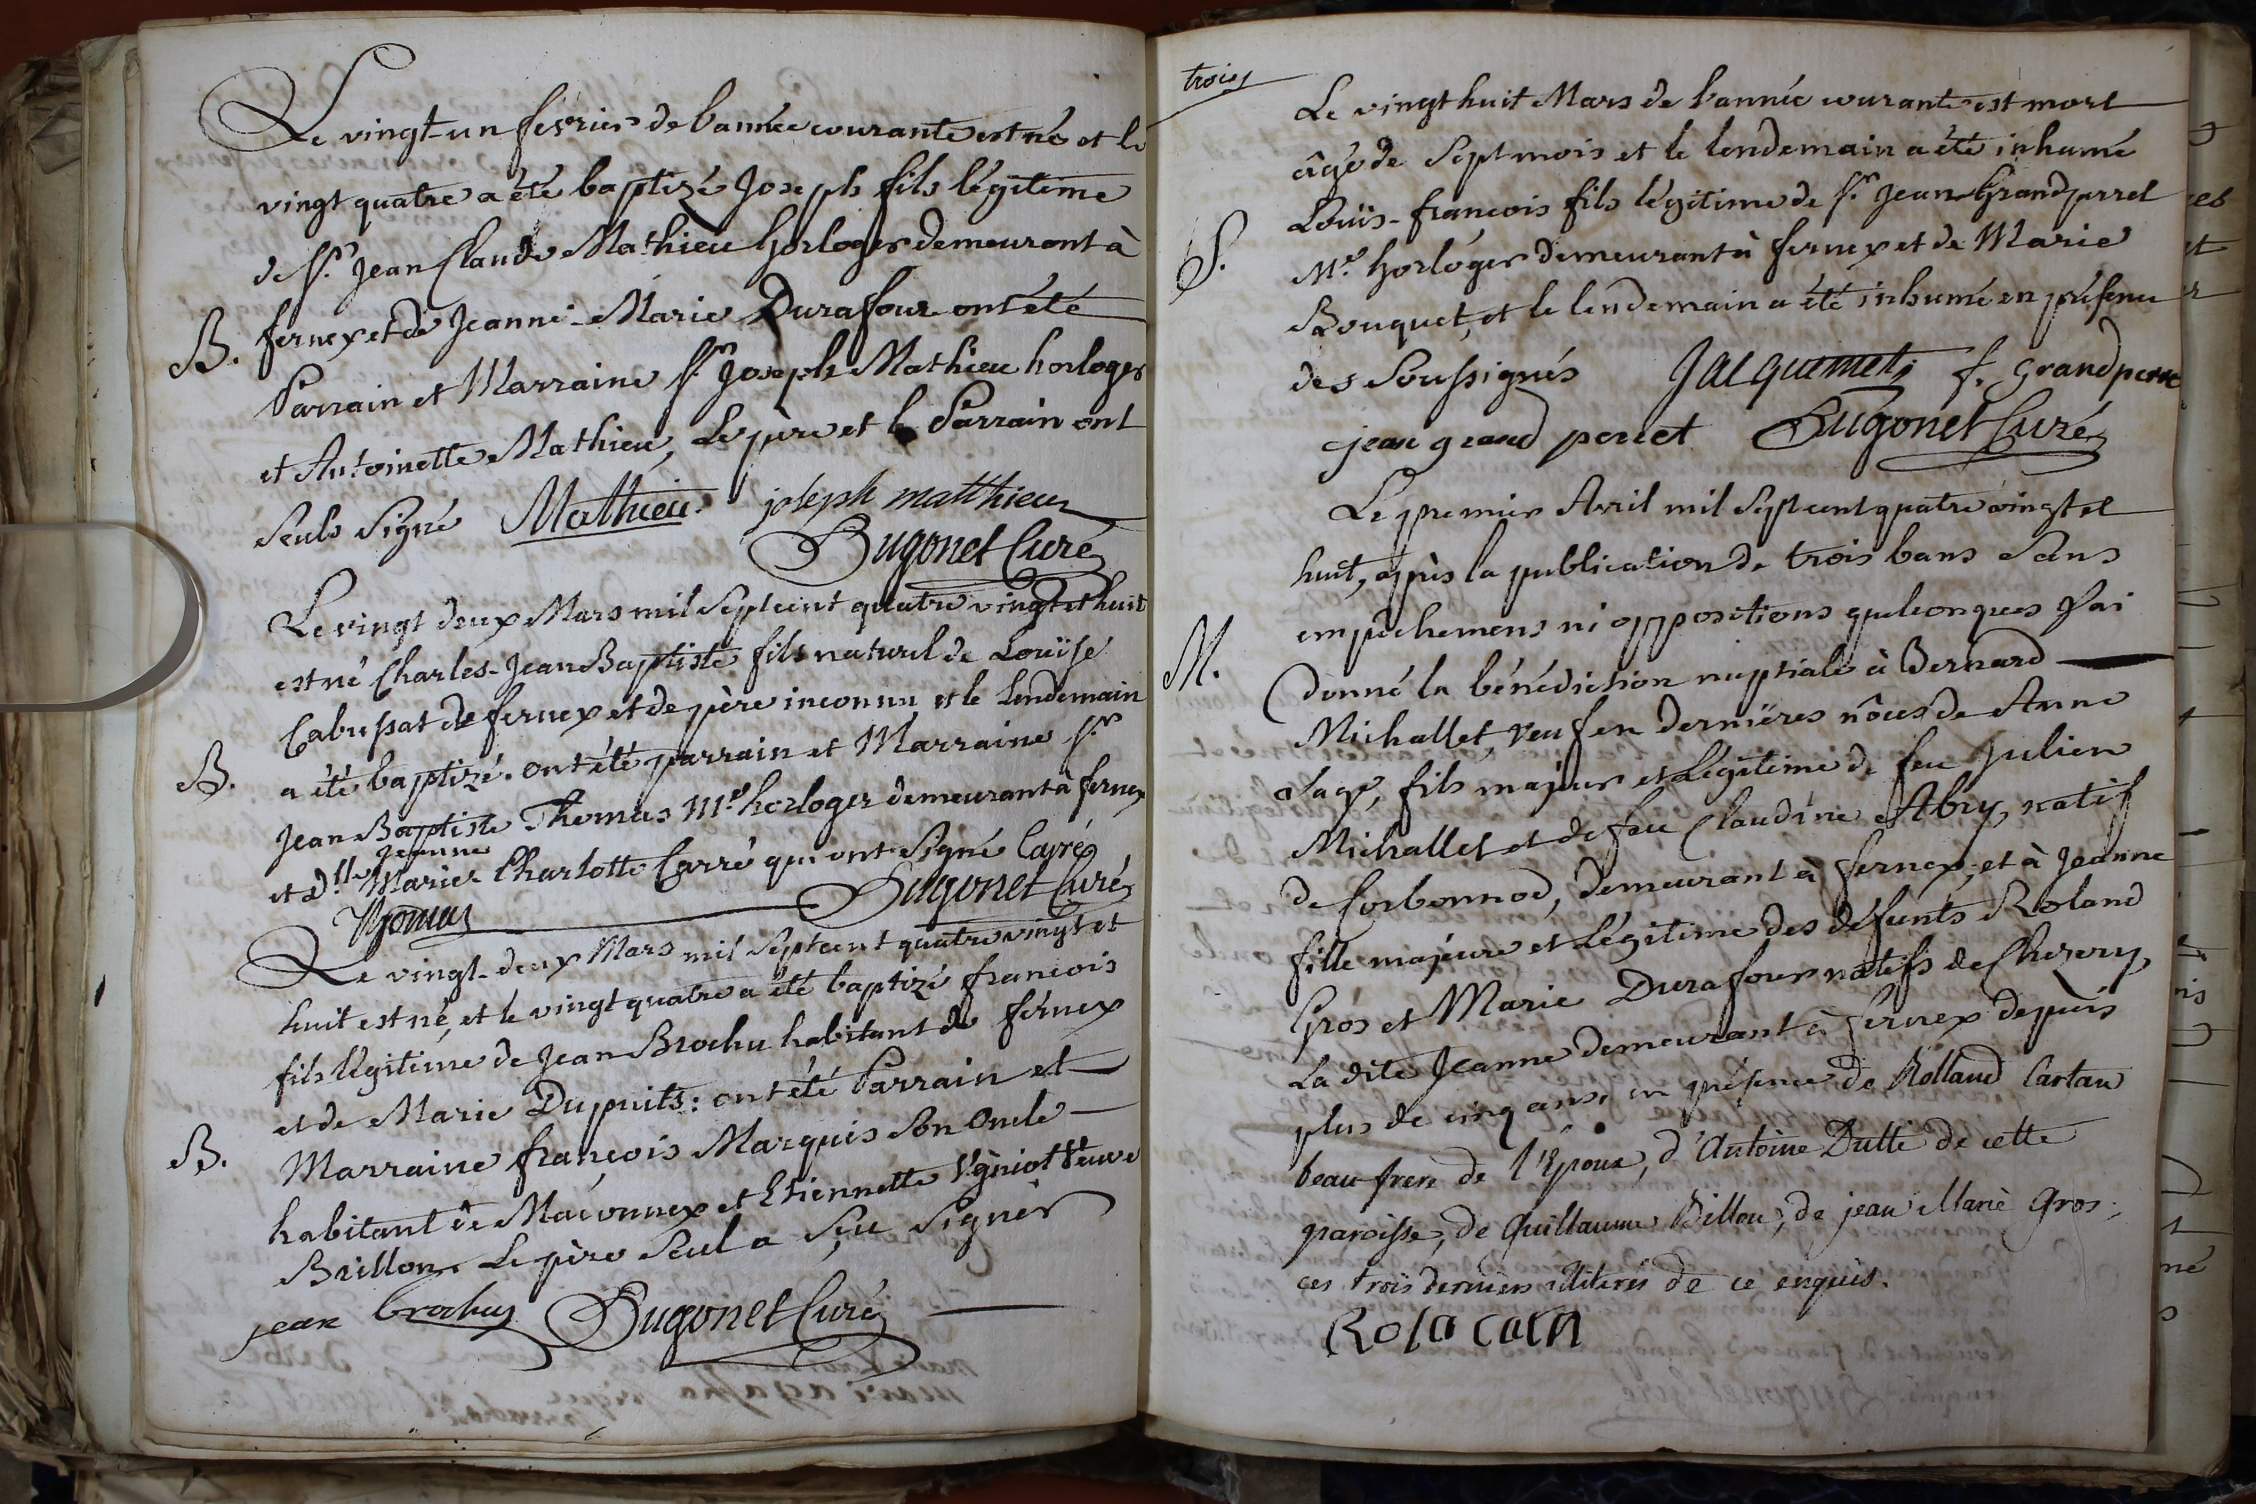 Le vingt-un fevrier de l'année courante est né et le
vingt quatre a été baptizé Joseph fils légitime
de Sr. Jean Claude Mathieu horloger demeurant à
B. fernex et de Jeanne-Marie Durafour ont été
Parrain et Marraine Sr. Joseph Mathieu horloger
et Antoinette Mathieu, Le père et le Parrain ont
seuls signé Mathieu joseph matthieu
Bugonet Curé
Le vingt deux Mars mil sept cent quatre vingt et huit
est né Charles-Jean Baptiste fils naturel de Louïse
Cabussat de fernex et de père inconnu et le lendemain
B. a été baptizé. ont été parrain et Marraine Sr.
Jean Baptiste Thomas Me. horloger demeurant à fernex
jeanne
et Dlle Marie Charlotte Carré qui ont signé Carré
Thomas Bugonet Curé
Le vingt-deux Mars mil sept cent quatre vingt et
huit est né, et le vingt quatre a été baptizé francois
fils légitime de Jean Brochu habitant de férnex
et de Marie Dupuits: ont été Parrain et
B. Marraine françois Marquis son oncle
habitant de Maconnex et Etiennette Vgniot Veuve
Brillon. Le père seul a sçu signer
jean brochu Bugonet Curé
trois
Le vingt huit Mars de l'année courante est mort
âgé de sept mois et le lendemain a été inhumé
Louïs-françois fils légitime de Sr. Jean Grandperret
S. Me. horloger demeurant à fernex et de Marie
Bouquet, et le lendemain a été inhumé en présence
des soussignés Jacquemet f. grandperret
jean grand perret Bugonet Curé
Le premier Avril mil sept cent quatre vingt et
huit, après la publication de trois bans sans
empêchemens ni oppositions quelconques J'ai
M. donné la bénédiction nuptiale à Bernard
Michallet, veuf en dernières nôces de Anne
Sage, fils majeur et légitime de feu Julien
Michallet et de feu Claudine Abry, natif
de Corbonnod, demeurant à fernex, et à Jeanne
fille majeure et légitime des défunts Roland
Gros et Marie Durafour natifs de Chezery,
La dite Jeanne demeurant à fernex depuis
plus de cinq ans, en présence de Rolland Cartan
beau frere de l'Epoux, d'Antoine Dutti de cette
paroisse, de Guillaume Billon, de jean Marie Gros;
ces trois derniers illiterés de ce enquis.
Rola cata